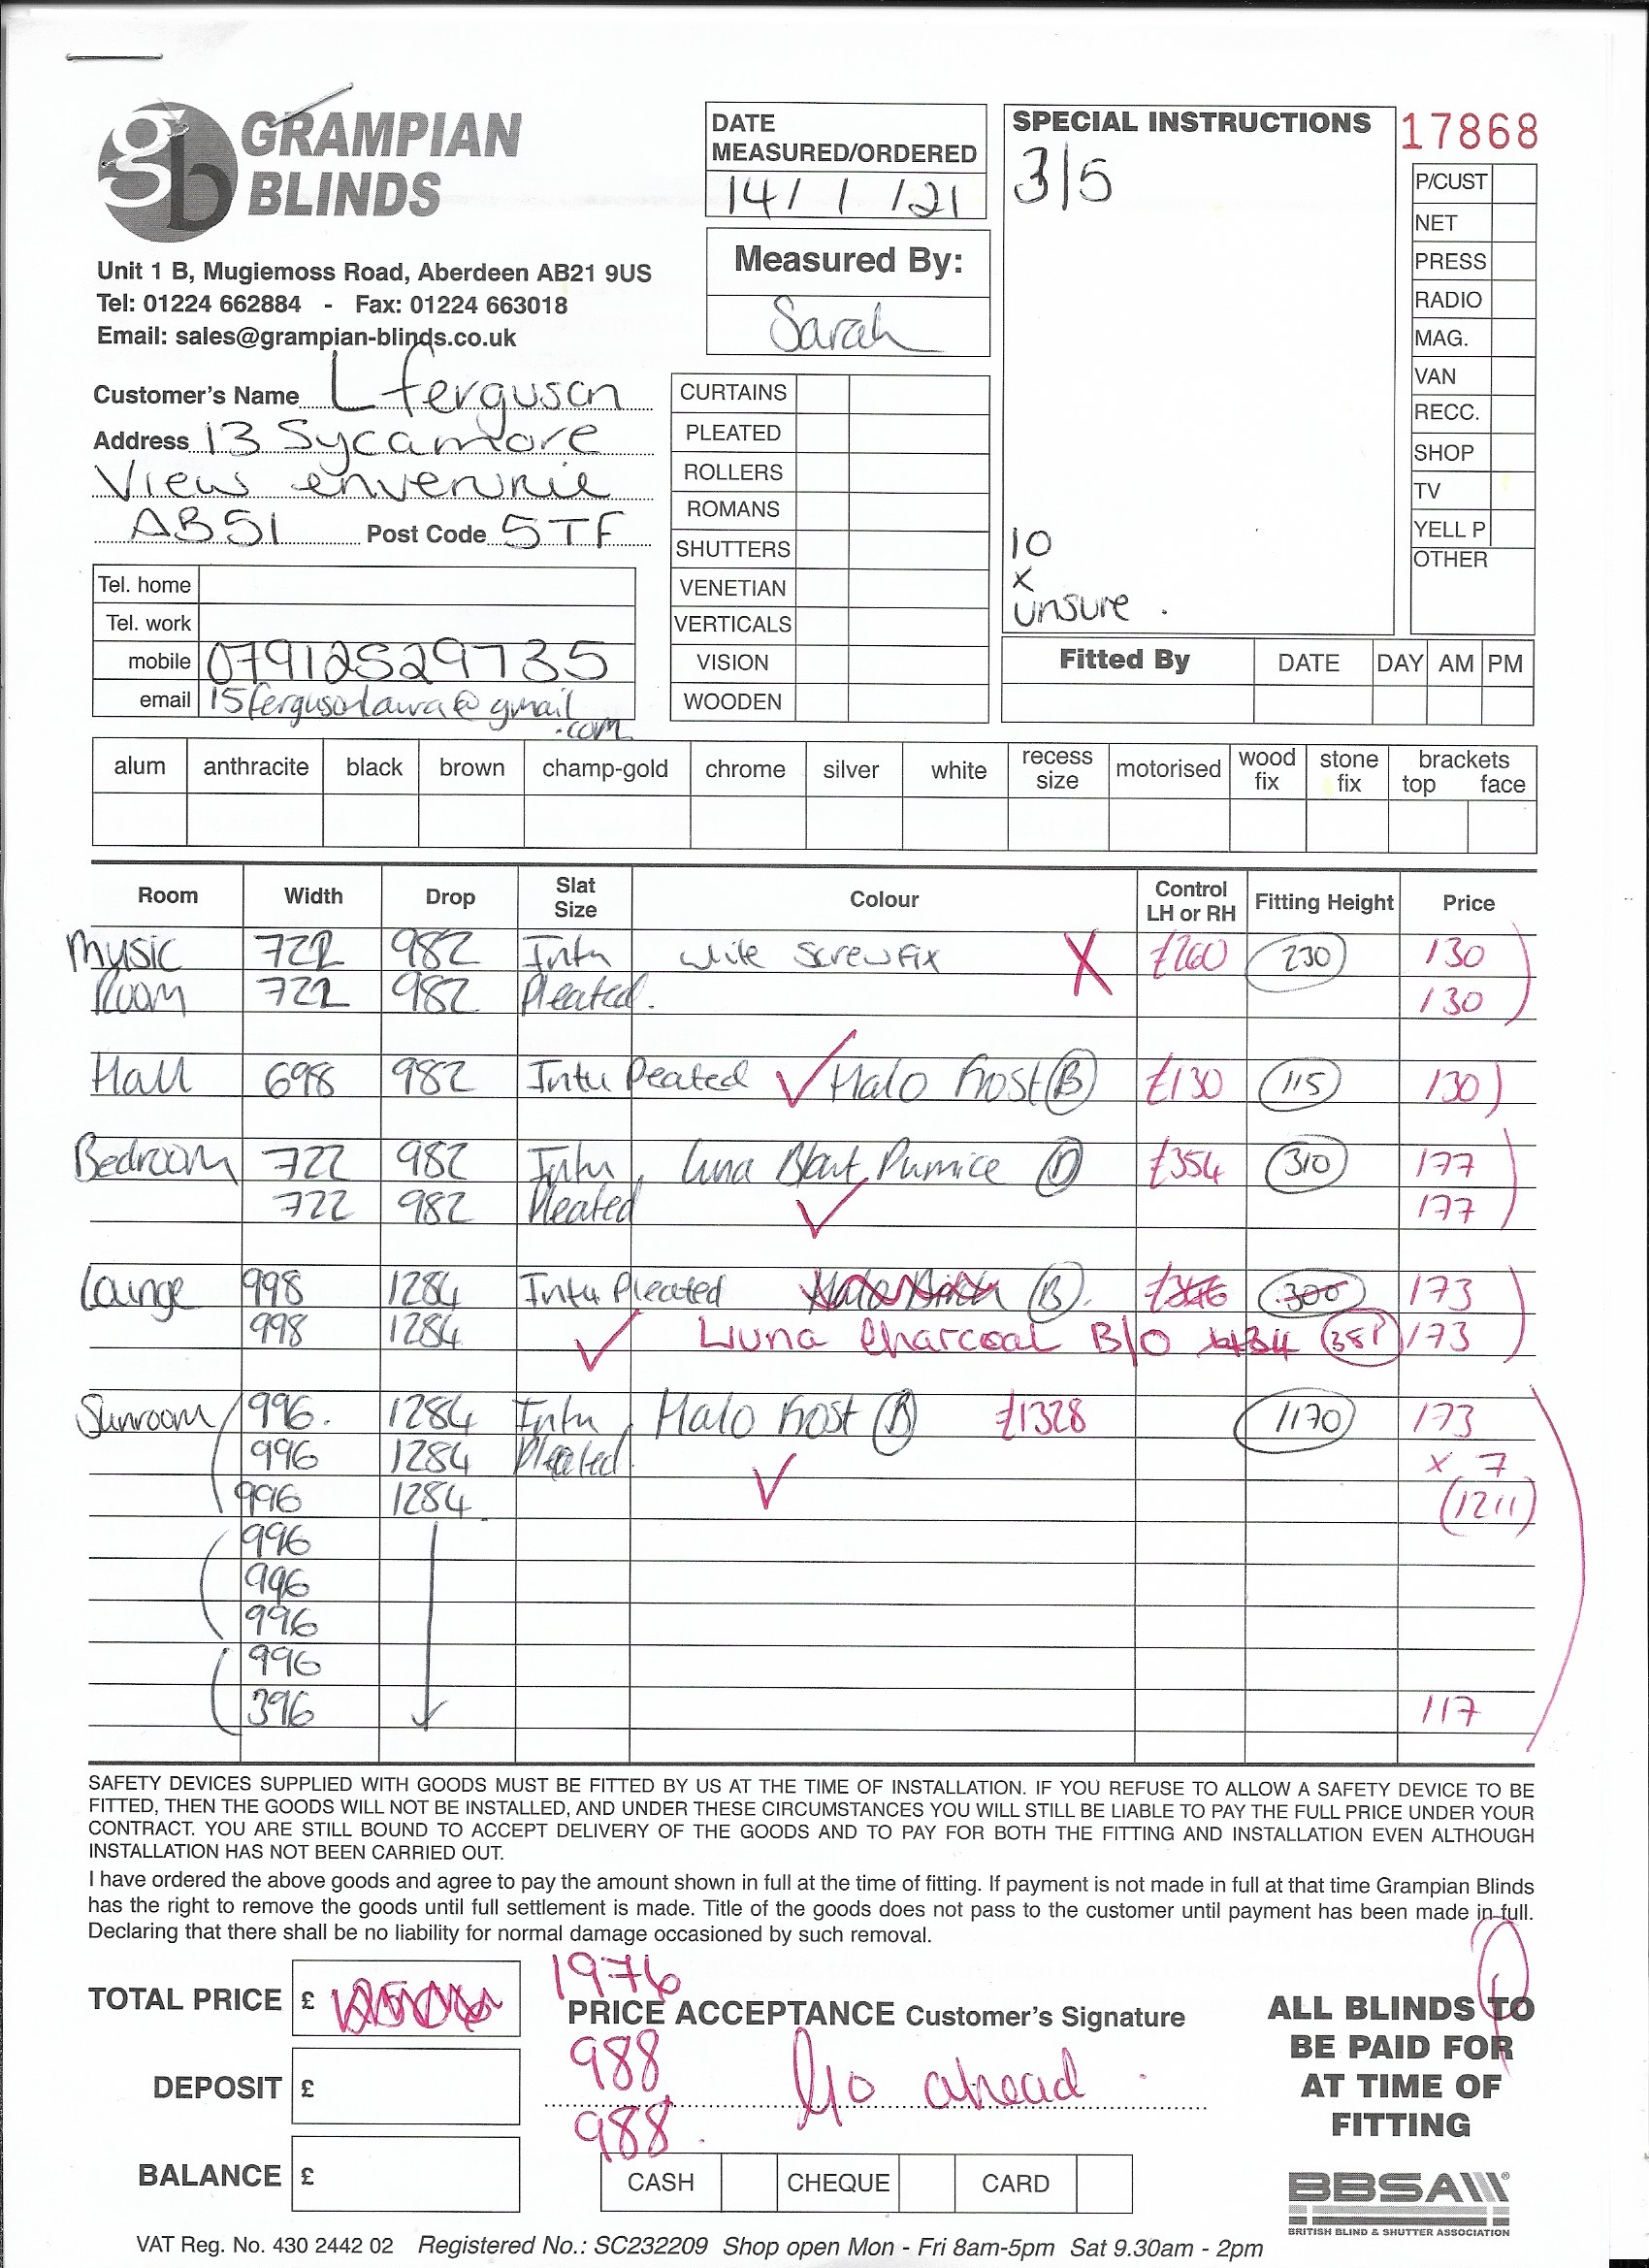 GRAMPIAN
BLINDS
Unit 1 B, Mugiemoss Road, Aberdeen AB21 9US
Tel: 01224 662884 - Fax: 01224 663018
Email: sales@grampian-blinds.co.uk
DATE
MEASURED/ORDERED
14/ 1 /21
Measured By:
Sarah
SPECIAL INSTRUCTIONS
3/5
10
x
unsure .
17868
P/CUST
NET
PRESS
RADIO
MAG.
VAN
RECC.
SHOP
TV
YELL P
OTHER
Customer's Name L ferguson
Address 13 Sycamore
View enverurie
AB51 Post Code 5TF
Tel. home
Tel. work
mobile 07912529735
email 15fergusonlaura@gmail
.com
CURTAINS
PLEATED
ROLLERS
ROMANS
SHUTTERS
VENETIAN
VERTICALS
VISION
WOODEN
Fitted By DATE DAY AM PM
alum anthracite black brown champ-gold chrome silver white recess size motorised wood fix stone fix brackets top face
Room Width Drop Slat Size Colour Control LH or RH Fitting Height Price
Music 722 982 Intu white screwfix X £260 230 130
Room 722 982 Pleated. 130
Hall 698 982 Intu Peated Halo Frost B £130 115 130
Bedroom 722 982 Intu Luna Blout Pumice D £354 310 177
722 982 Pleated 177
Lounge 998 1284 Intu Pleated B. £346 300 173
998 1284 Luna Charcoal B/O 381 173
Sunroom 996. 1284 Intu Halo Frost B £1328 1170 173
996 1284 Pleated x 7
996 1284 (1211)
996
996
996
996
396 117
SAFETY DEVICES SUPPLIED WITH GOODS MUST BE FITTED BY US AT THE TIME OF INSTALLATION. IF YOU REFUSE TO ALLOW A SAFETY DEVICE TO BE
FITTED, THEN THE GOODS WILL NOT BE INSTALLED, AND UNDER THESE CIRCUMSTANCES YOU WILL STILL BE LIABLE TO PAY THE FULL PRICE UNDER YOUR
CONTRACT. YOU ARE STILL BOUND TO ACCEPT DELIVERY OF THE GOODS AND TO PAY FOR BOTH THE FITTING AND INSTALLATION EVEN ALTHOUGH
INSTALLATION HAS NOT BEEN CARRIED OUT.
I have ordered the above goods and agree to pay the amount shown in full at the time of fitting. If payment is not made in full at that time Grampian Blinds
has the right to remove the goods until full settlement is made. Title of the goods does not pass to the customer until payment has been made in full.
Declaring that there shall be no liability for normal damage occasioned by such removal.
TOTAL PRICE £
1976
PRICE ACCEPTANCE Customer's Signature
DEPOSIT £
988 Go ahead
988.
BALANCE £
CASH CHEQUE CARD
ALL BLINDS TO
BE PAID FOR
AT TIME OF
FITTING
BBSA
BRITISH BLIND & SHUTTER ASSOCIATION
VAT Reg. No. 430 2442 02 Registered No.: SC232209 Shop open Mon - Fri 8am-5pm Sat 9.30am - 2pm